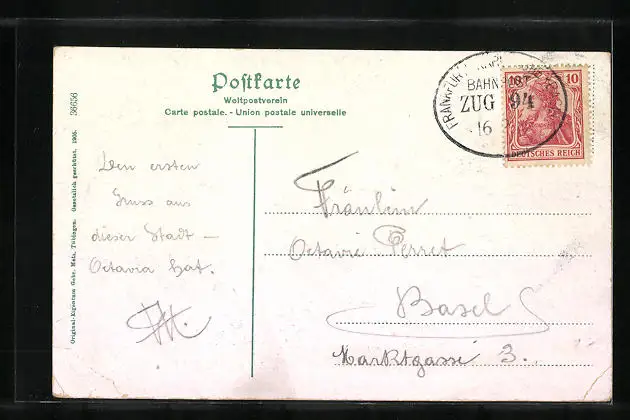 Postkarte
Weltpostverein
Carte postale. - Union postale universelle
36656
Original-Eigentum Gebr. Metz, Tübingen. Gesetzlich geschützt. 1905.
FRANKFURT
BAHNPOST
ZUG 94
16
10
DEUTSCHES REICH
Den ersten
Gruss aus
dieser Stadt –
Octavia hat.
Fräulein
Octavie Perret
Basel
Marktgasse 3.